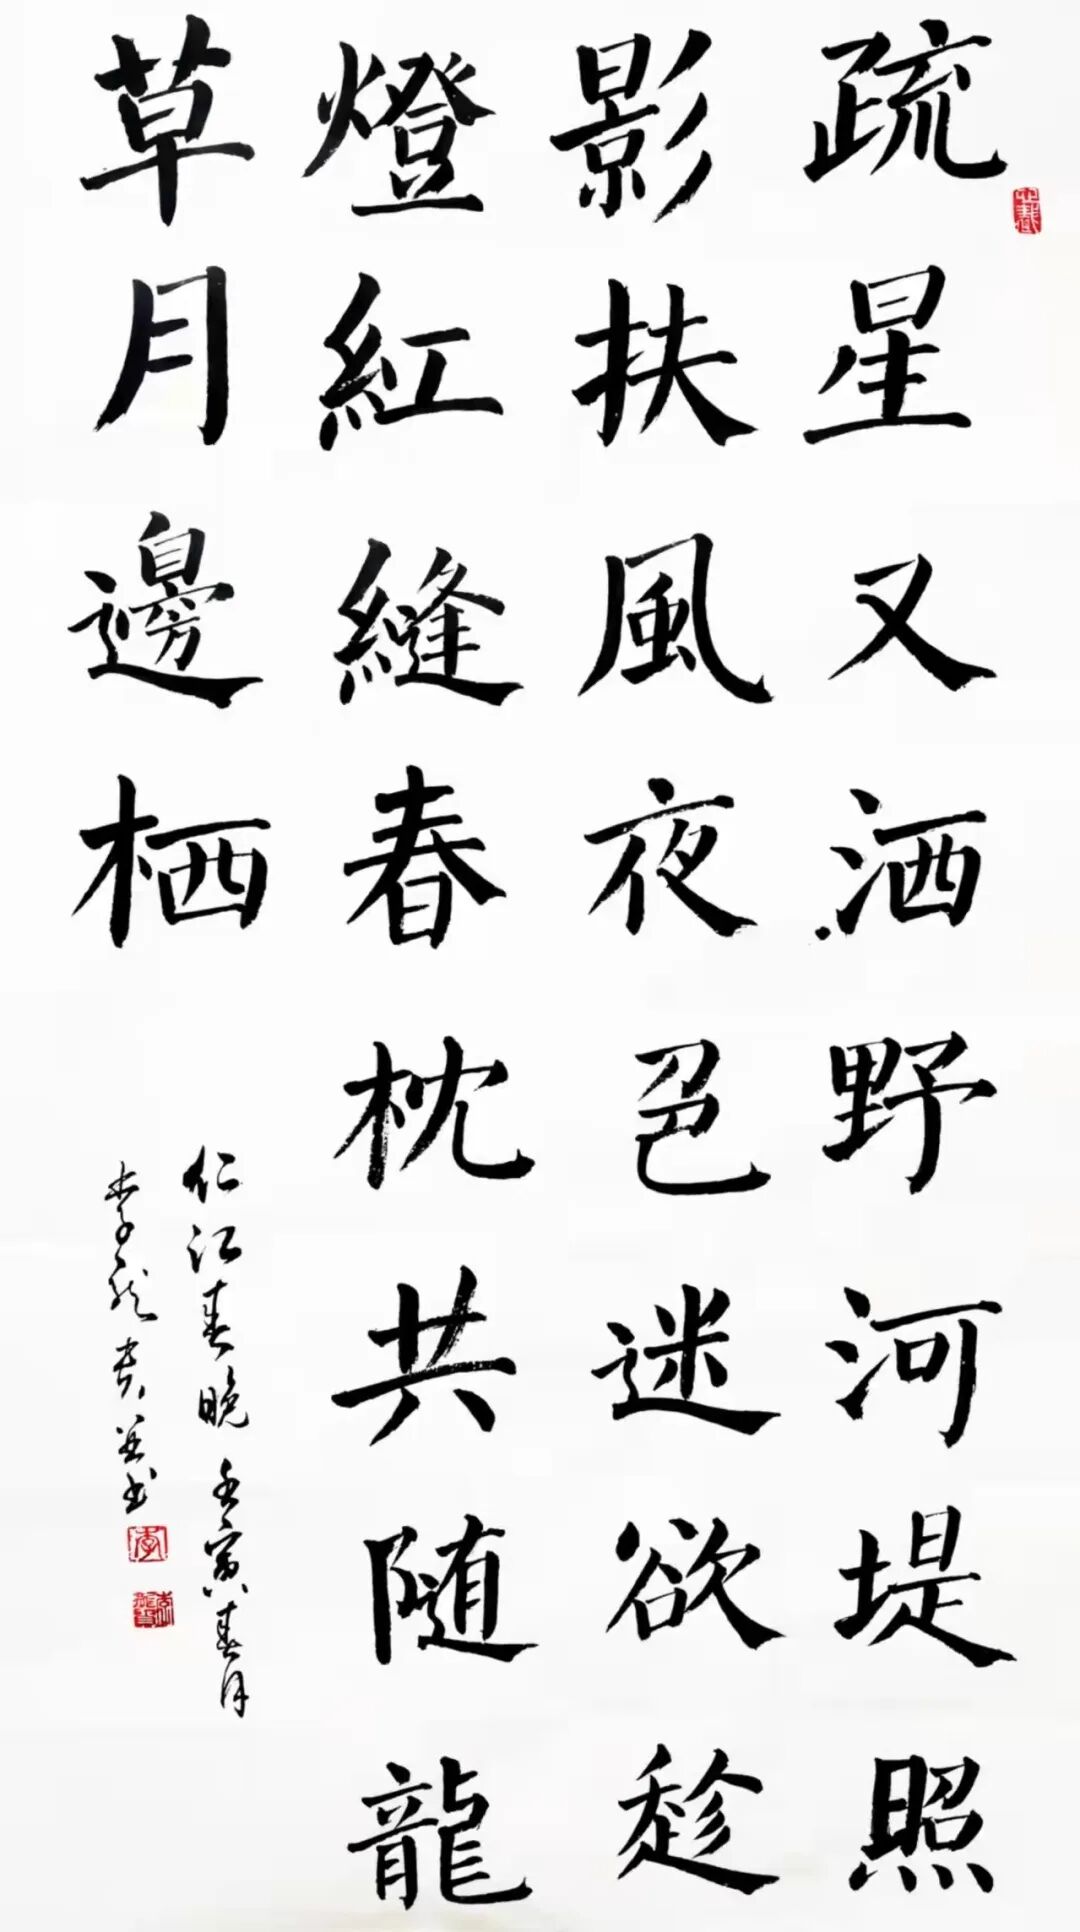 疏星又洒野河堤照
影扶風夜邑迷欲趁
燈紅縫春枕共随龍
草月邊栖
仁江春晚壬寅春月
李龍贵并书
李